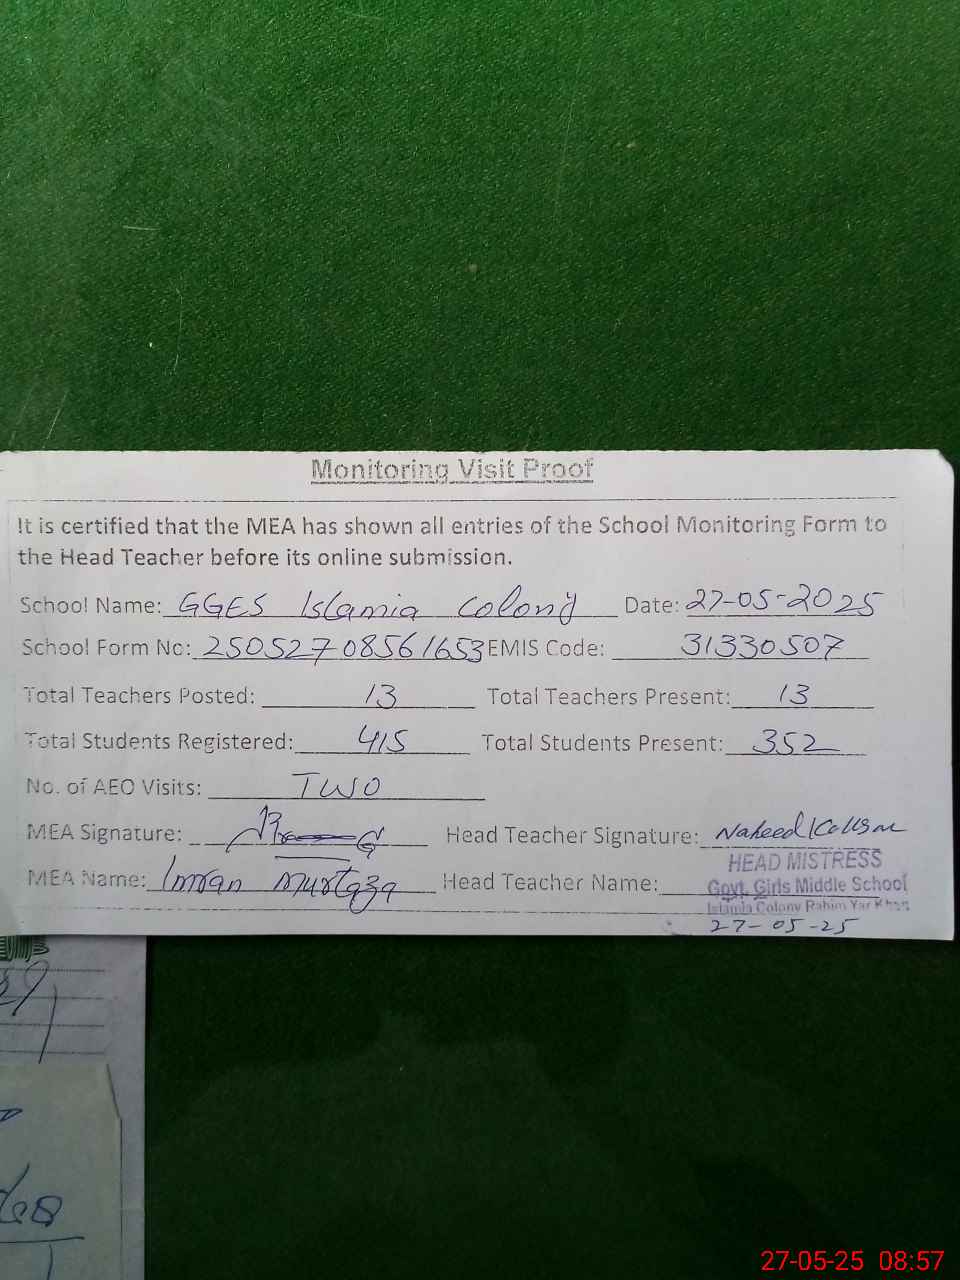 Monitoring Visit Proof
It is certified that the MEA has shown all entries of the School Monitoring Form to
the Head Teacher before its online submission.
School Name: GGES Islamia Colony Date: 27-05-2025
School Form No: 25052708561653 EMIS Code: 31330507
Total Teachers Posted: 13 Total Teachers Present: 13
Total Students Registered: 415 Total Students Present: 352
No. of AEO Visits: TWO
MEA Signature: Head Teacher Signature: Naheed
HEAD MISTRESS
MEA Name: Imran Murtaza Head Teacher Name: Govt. Girls Middle School
Islamia Colony Rahim Yar Khan
27-05-25
27-05-25 08:57